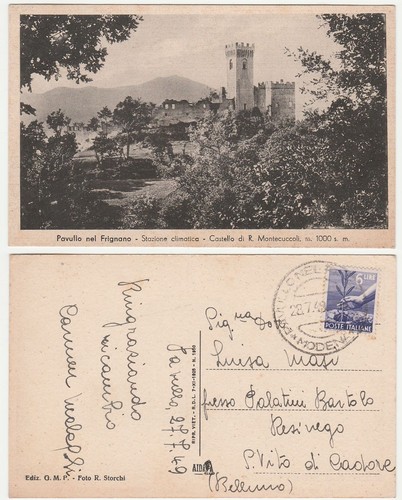 Pavullo nel Frignano - Stazione climatica - Castello di R. Montecuccoli, m. 1000 s. m.
Ringraziando
ricambio
Carmen
Pavullo, 27.7.49
Ediz. G. M. P. - Foto R. Storchi
RIPR. VIET. - R.D.L. 7-XI-1925 - N. 1950
6 LIRE
POSTE ITALIANE
28.7.49
MODENA
Sig.na
Luisa Masi
presso Palatini Bortolo
Resinego
S. Vito di Cadore
(Belluno)